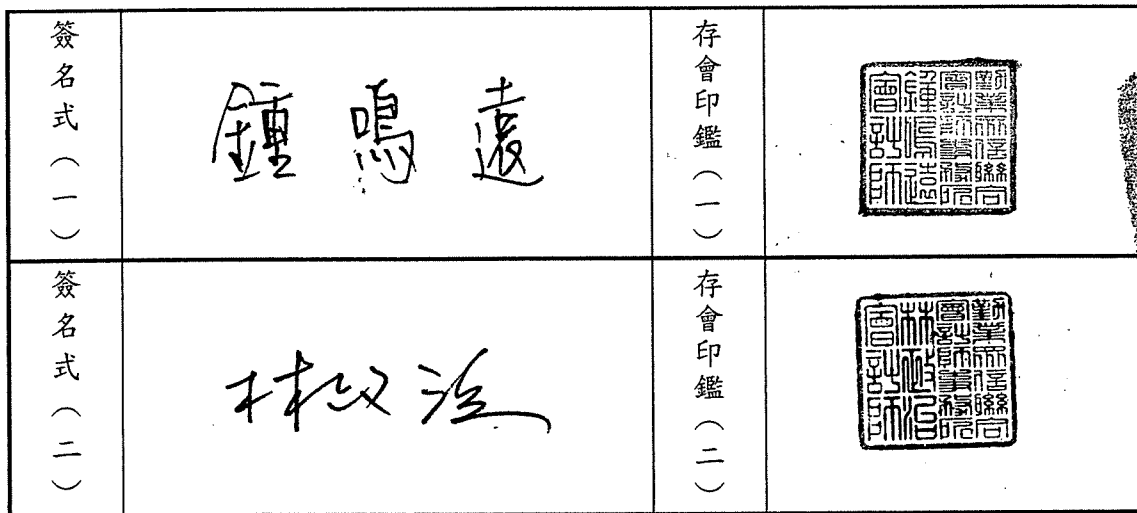 簽名式（一）
鍾鳴遠
存會印鑑（一）
勤業眾信聯合
會計師事務所
鍾鳴遠
會計師
簽名式（二）
林政治
存會印鑑（二）
勤業眾信聯合
會計師事務所
林政治
會計師